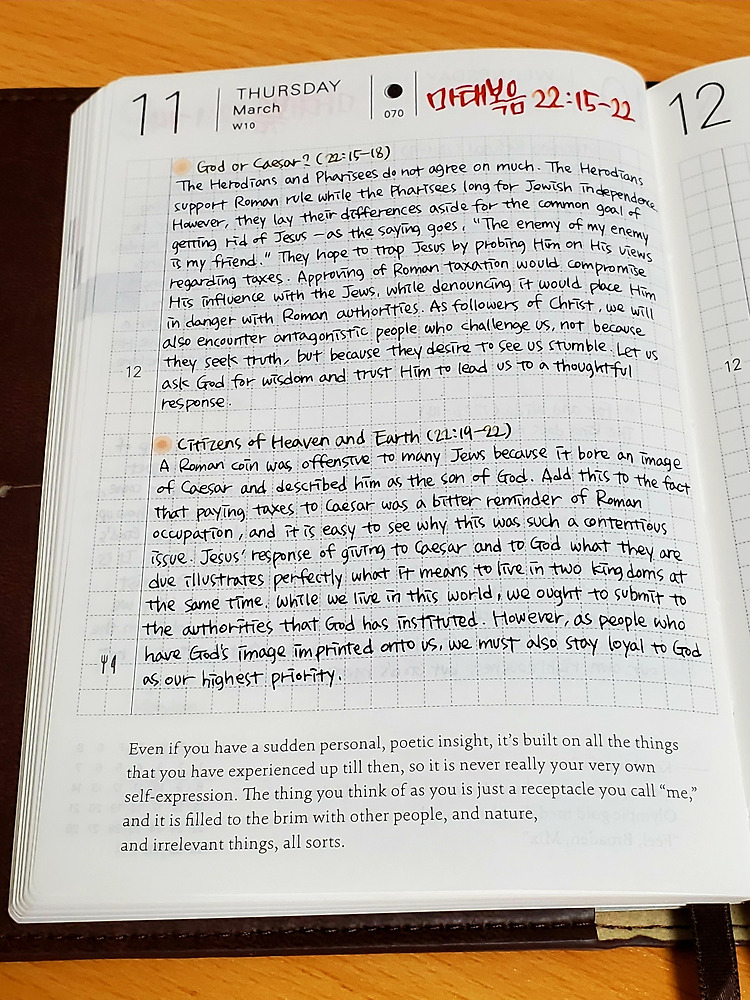 11
THURSDAY
March
W10
070
마태복음 22:15-22
12
God or Caesar? (22:15-18)
The Herodians and Pharisees do not agree on much. The Herodians
support Roman rule while the Pharisees long for Jewish independence.
However, they lay their differences aside for the common goal of
getting rid of Jesus – as the saying goes, "The enemy of my enemy
is my friend." They hope to trap Jesus by probing Him on His views
regarding taxes. Approving of Roman taxation would compromise
His influence with the Jews, while denouncing it would place Him
in danger with Roman authorities. As followers of Christ, we will
also encounter antagonistic people who challenge us, not because
they seek truth, but because they desire to see us stumble. Let us
12
ask God for wisdom and trust Him to lead us to a thoughtful
response.
12
Citizens of Heaven and Earth (22:19-22)
A Roman coin was offensive to many Jews because it bore an image
of Caesar and described him as the son of God. Add this to the fact
that paying taxes to Caesar was a bitter reminder of Roman
occupation, and it is easy to see why this was such a contentious
issue. Jesus' response of giving to Caesar and to God what they are
due illustrates perfectly what it means to live in two kingdoms at
the same time. While we live in this world, we ought to submit to
the authorities that God has instituted. However, as people who
have God's image imprinted onto us, we must also stay loyal to God
as our highest priority.
Even if you have a sudden personal, poetic insight, it's built on all the things
that you have experienced up till then, so it is never really your very own
self-expression. The thing you think of as you is just a receptacle you call "me,"
and it is filled to the brim with other people, and nature,
and irrelevant things, all sorts.